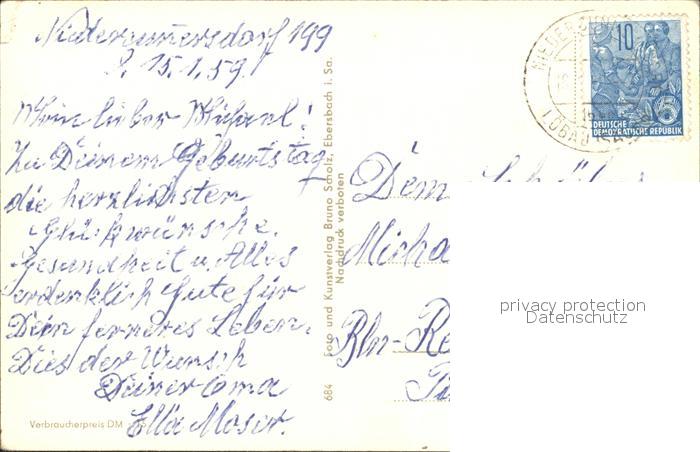 Niedercunnersdorf 199
15.1.59.
Mein lieber Michael!
Zu Deinem Geburtstag
die herzlichsten
Glückwünsche.
Gesundheit u. Alles
erdenklich Gute für
Dein ferneres Leben.
Dies der Wunsch
Deiner Oma
Ella Moser.
Verbraucherpreis DM
684 Foto und Kunstverlag Bruno Scholz, Ebersbach i. Sa.
Nachdruck verboten
10
DEUTSCHE
DEMOKRATISCHE REPUBLIK
5
LÖBAU
Dem
Micha
Bln-Re
privacy protection
Datenschutz